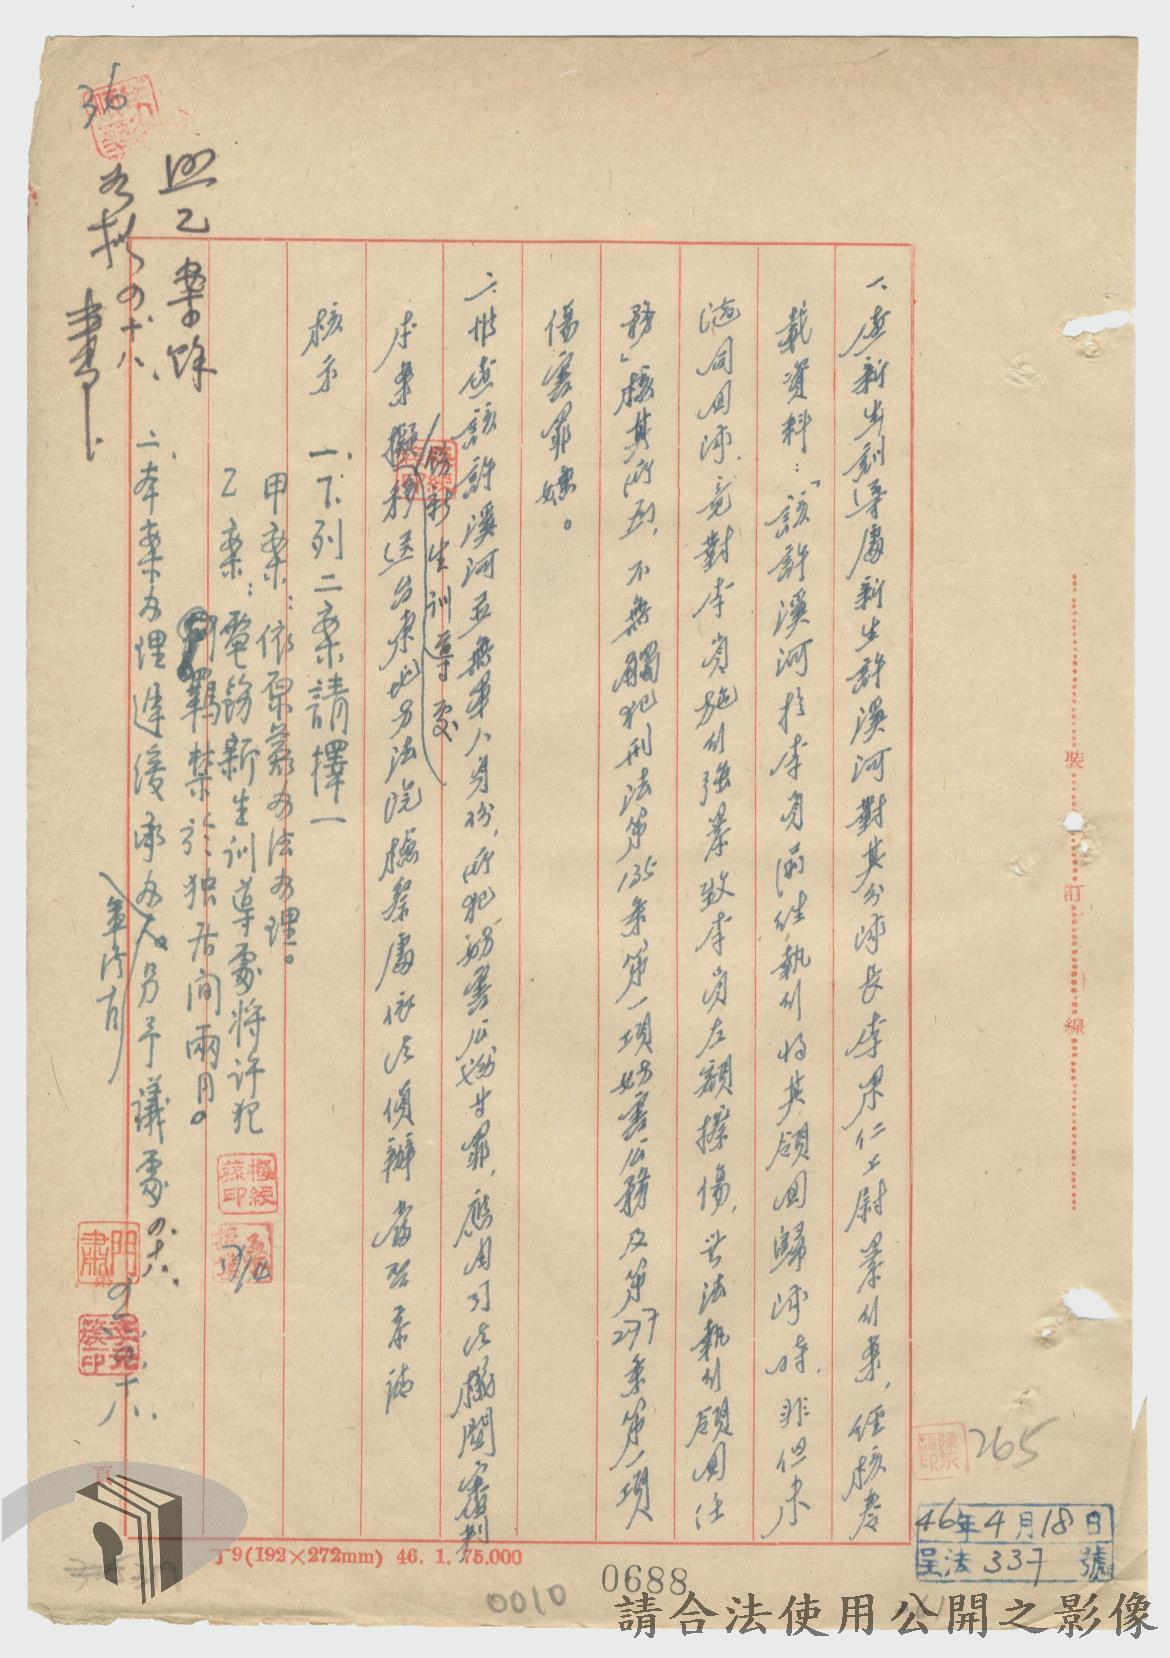 一、查新生訓導處新生許溪河對其分隊長李榮仁上尉暴行案，經核卷
載資料：「該許溪河於李員前往執行將其領回歸隊時，非但未
隨同回隊，竟對李員施行強暴致李員左額擦傷，無法執行領回任
務」核其所為，不無觸犯刑法第135条第一項妨害公務及第277条第一項
傷害罪嫌。
二、惟查該許溪河並無軍人身份，所犯妨害公務等罪，應由司法機關審判
本案擬
飭新生訓導處
移送台東地方法院檢察處依法偵辦當否亦請
核示
一、下列二案請擇一
甲案：依原簽办法办理。
乙案：電飭新生訓導處將許犯
羈禁於独居間兩月。
二、本案办理遲緩承办人另予議處
四.十八.
照乙案餘
為擬四十八、
36
裝
訂
線
265
46年4月18日
呈法337號
頁
丁9(192×272mm) 46. 1. 75.000
0688
0010
請合法使用公開之影像